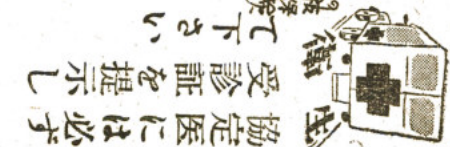 衛生
協定医には必ず
受診証を提示し
て下さい